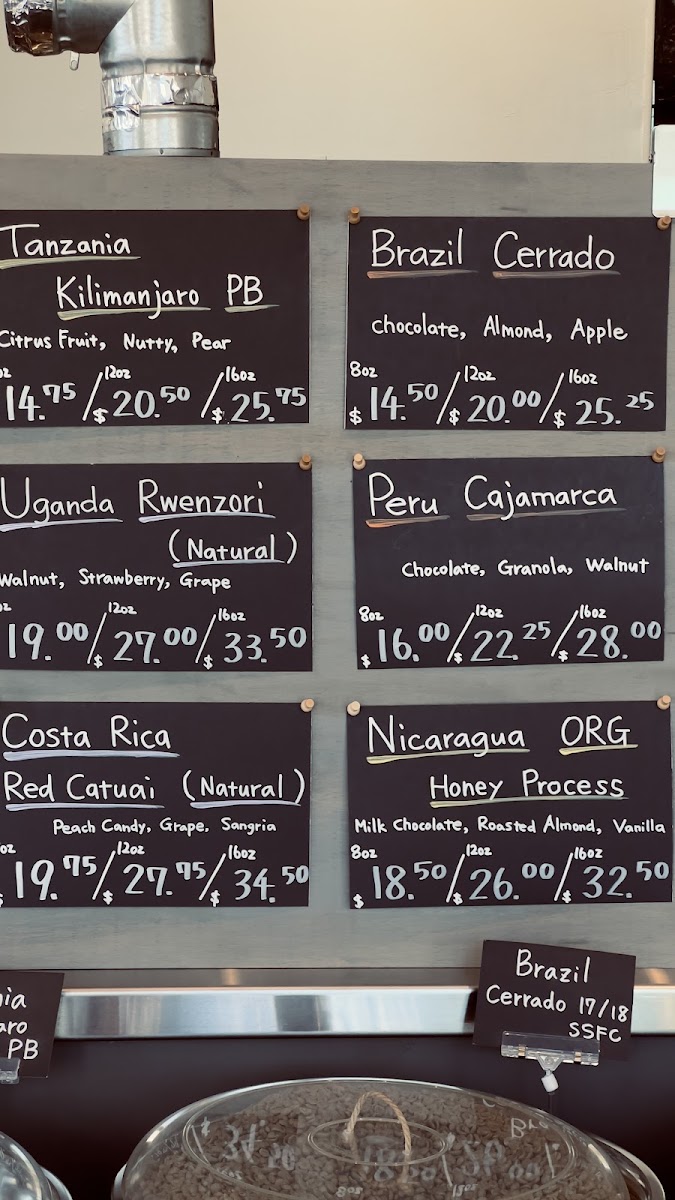 Tanzania
Kilimanjaro PB
Citrus Fruit, Nutty, Pear
oz 12oz 16oz
14.75/$20.50/$25.75
Brazil Cerrado
chocolate, Almond, Apple
8oz 12oz 16oz
$14.50/$20.00/$25.25
Uganda Rwenzori
(Natural)
Walnut, Strawberry, Grape
oz 12oz 16oz
19.00/$27.00/$33.50
Peru Cajamarca
Chocolate, Granola, Walnut
8oz 12oz 16oz
$16.00/$22.25/$28.00
Costa Rica
Red Catuai (Natural)
Peach Candy, Grape, Sangria
oz 12oz 16oz
$19.75/$27.75/$34.50
Nicaragua ORG
Honey Process
Milk Chocolate, Roasted Almond, Vanilla
8oz 12oz 16oz
$18.50/$26.00/$32.50
nia
aro
PB
Brazil
Cerrado 17/18
SSFC